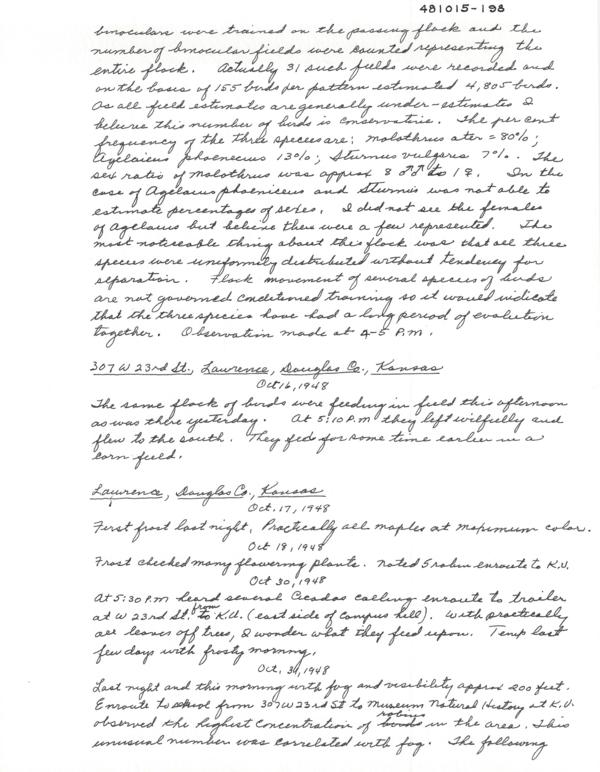 481015-198
binoculars were trained on the passing flock and the
number of binocular fields were counted representing the
entire flock. Actually 31 such fields were recorded and
on the basis of 155 birds per pattern estimated 4,805 birds.
As all field estimates are generally under-estimates I
believe this number of birds is conservative. The per cent
frequency of the three species are: Molothrus ater = 80%;
Agelaieus phoeneceus 13%; Sturnus vulgaris 7%. The
sex ratio of Molothrus was approx 8 ♂♂ to 1 ♀. In the
case of Agelaius phoeniceus and Sturnus was not able to
estimate percentages of sexes. I did not see the females
of Agelaius but believe there were a few represented. The
most noticeable thing about this flock was that all three
species were uniformely distributed without tendency for
separation. Flock movement of several species of birds
are not governed condetioned training so it would indicate
that the three species have had a long period of evolution
together. Observation made at 4-5 P.M.
307 W 23rd St., Lawrence, Douglas Co., Kansas
Oct 16, 1948
The same flock of birds were feeding in field this afternoon
as was there yesterday. At 5:10 P.M they left wilfully and
flew to the south. They fed for some time earlier in a
corn field.
Lawrence, Douglas Co., Kansas
Oct. 17, 1948
First frost last night. Practically all maples at maximum color.
Oct 18, 1948
Frost checked many flowering plants. Noted 5 robin enroute to K.U.
Oct 30, 1948
At 5:30 P.M heard several Cicadas calling enroute to trailer
at W 23rd St. from to K.U. (east side of Campus hill). With practically
all leaves off trees, I wonder what they feed upon. Temp last
few days with frosty morning.
Oct. 31, 1948
Last night and this morning with fog and visibility approx 200 feet.
Enroute to school from 307 W 23rd St to Museum Natural History at K.U.
observed the highest concentration of robins birds in the area. This
unusual number was correlated with fog. The following